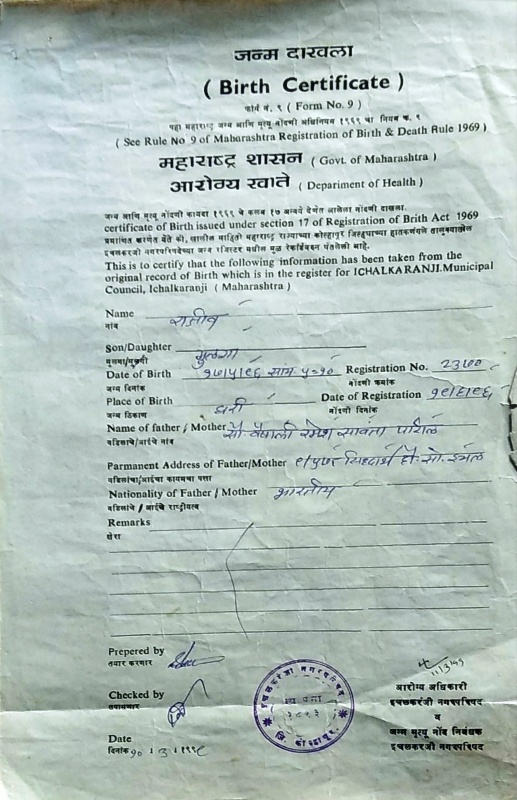 जन्म दाखला
( Birth Certificate )
फॉर्म नं. ९ ( Form No. 9 )
पहा महाराष्ट्र जन्म आणि मृत्यू नोंदणी अधिनियम १९६९ चा नियम क्र. ९
( See Rule No 9 of Maharashtra Registration of Birth & Death Rule 1969 )
महाराष्ट्र शासन ( Govt. of Maharashtra )
आरोग्य खाते ( Deparment of Health )
जन्म आणि मृत्यू नोंदणी कायदा १९६९ चे कलम १७ अन्वये देणेत आलेला नोंदणी दाखला.
certificate of Birth issued under section 17 of Registration of Brith Act 1969
प्रमाणित करणेत येते की, खालील माहिती महाराष्ट्र राज्याच्या कोल्हापूर जिल्ह्याच्या हातकणंगले तालुक्यातील
इचलकरंजी नगरपरिषदेच्या जन्म रजिस्टर मधील मुळ रेकॉर्डवरुन घेतलेली आहे.
This is to certify that the following information has been taken from the
original record of Birth which is in the register for ICHALKARANJI.Municipal
Council, Ichalkaranji ( Maharashtra )
Name राजीव
नांव
Son/Daughter मुलगा
मुलगा/मुलगी
Date of Birth १७/५/९६ साय ५=१० Registration No. 2300
जन्म दिनांक नोंदणी क्रमांक
Place of Birth घरी Date of Registration १९/६/९६
जन्म ठिकाण नोंदणी दिनांक
Name of father / Mother सौ वैशाली रमेश सावंता पाटील
वडिलांचे/आईचे नांव
Parmanent Address of Father/Mother सो. इचल
वडिलांचा/आईचा कायमचा पत्ता
Nationality of Father / Mother भारतीय
वडिलांचे / आईचे राष्ट्रीयत्व
Remarks
शेरा
Prepared by
तयार करणार
Checked by
तपासणार
Date
दिनांक १० / ३ / १९९८
आरोग्य अधिकारी
इचलकरंजी नगरपरिषद
व
जन्म मृत्यू नोंद निबंधक
इचलकरंजी नगरपरिषद
इचलकरंजी नगरपरिषद
जि. कोल्हापूर.